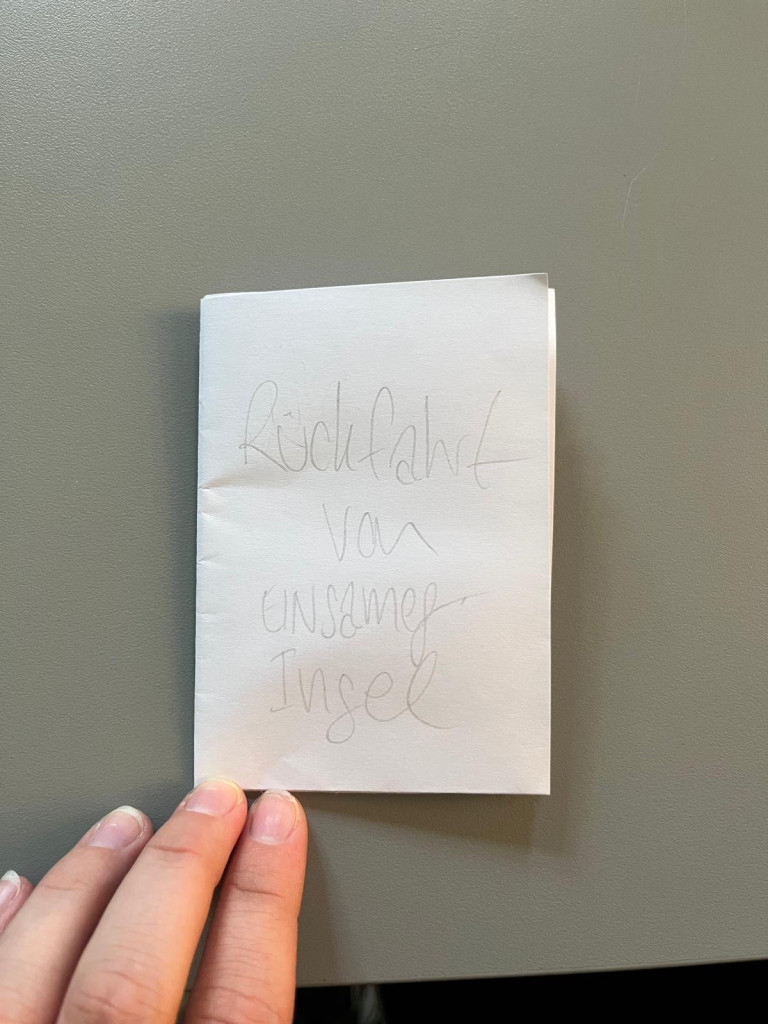 Rückfahrt
von
einsamer
Insel